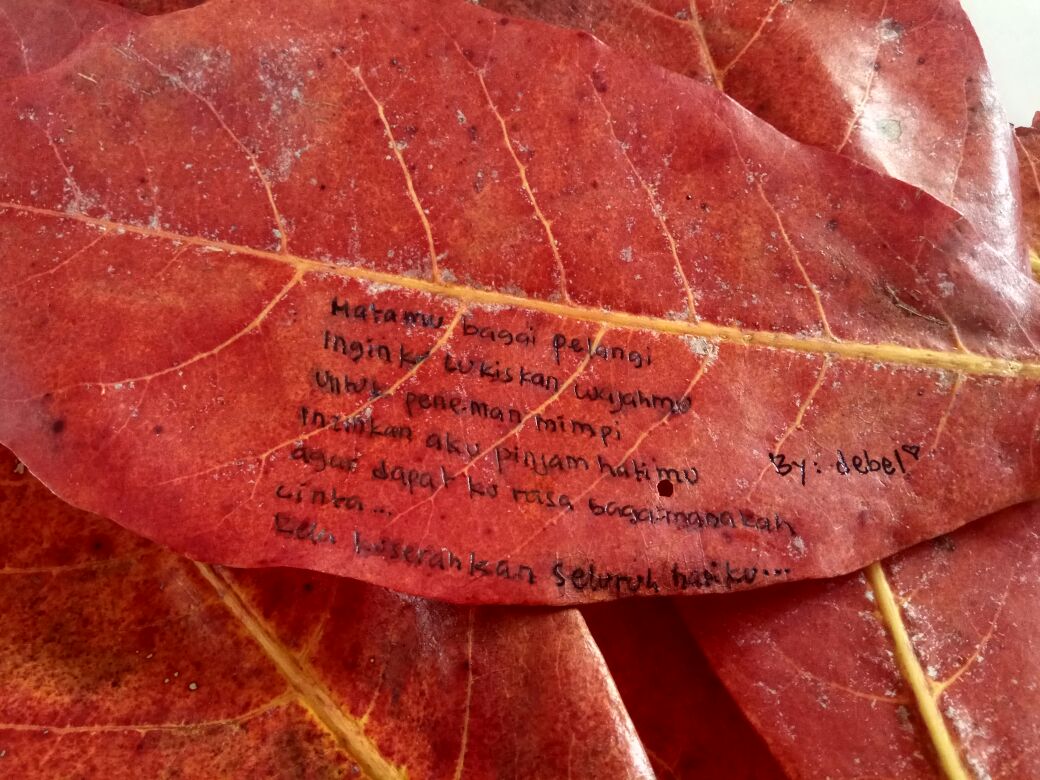 Matamu bagai pelangi
Ingin ku lukiskan wajahmu
Untuk peneman mimpi
Izinkan aku pinjam hatimu
agar dapat ku rasa bagaimanakah
cinta...
Rela kuserahkan seluruh hariku...
By: debel♡